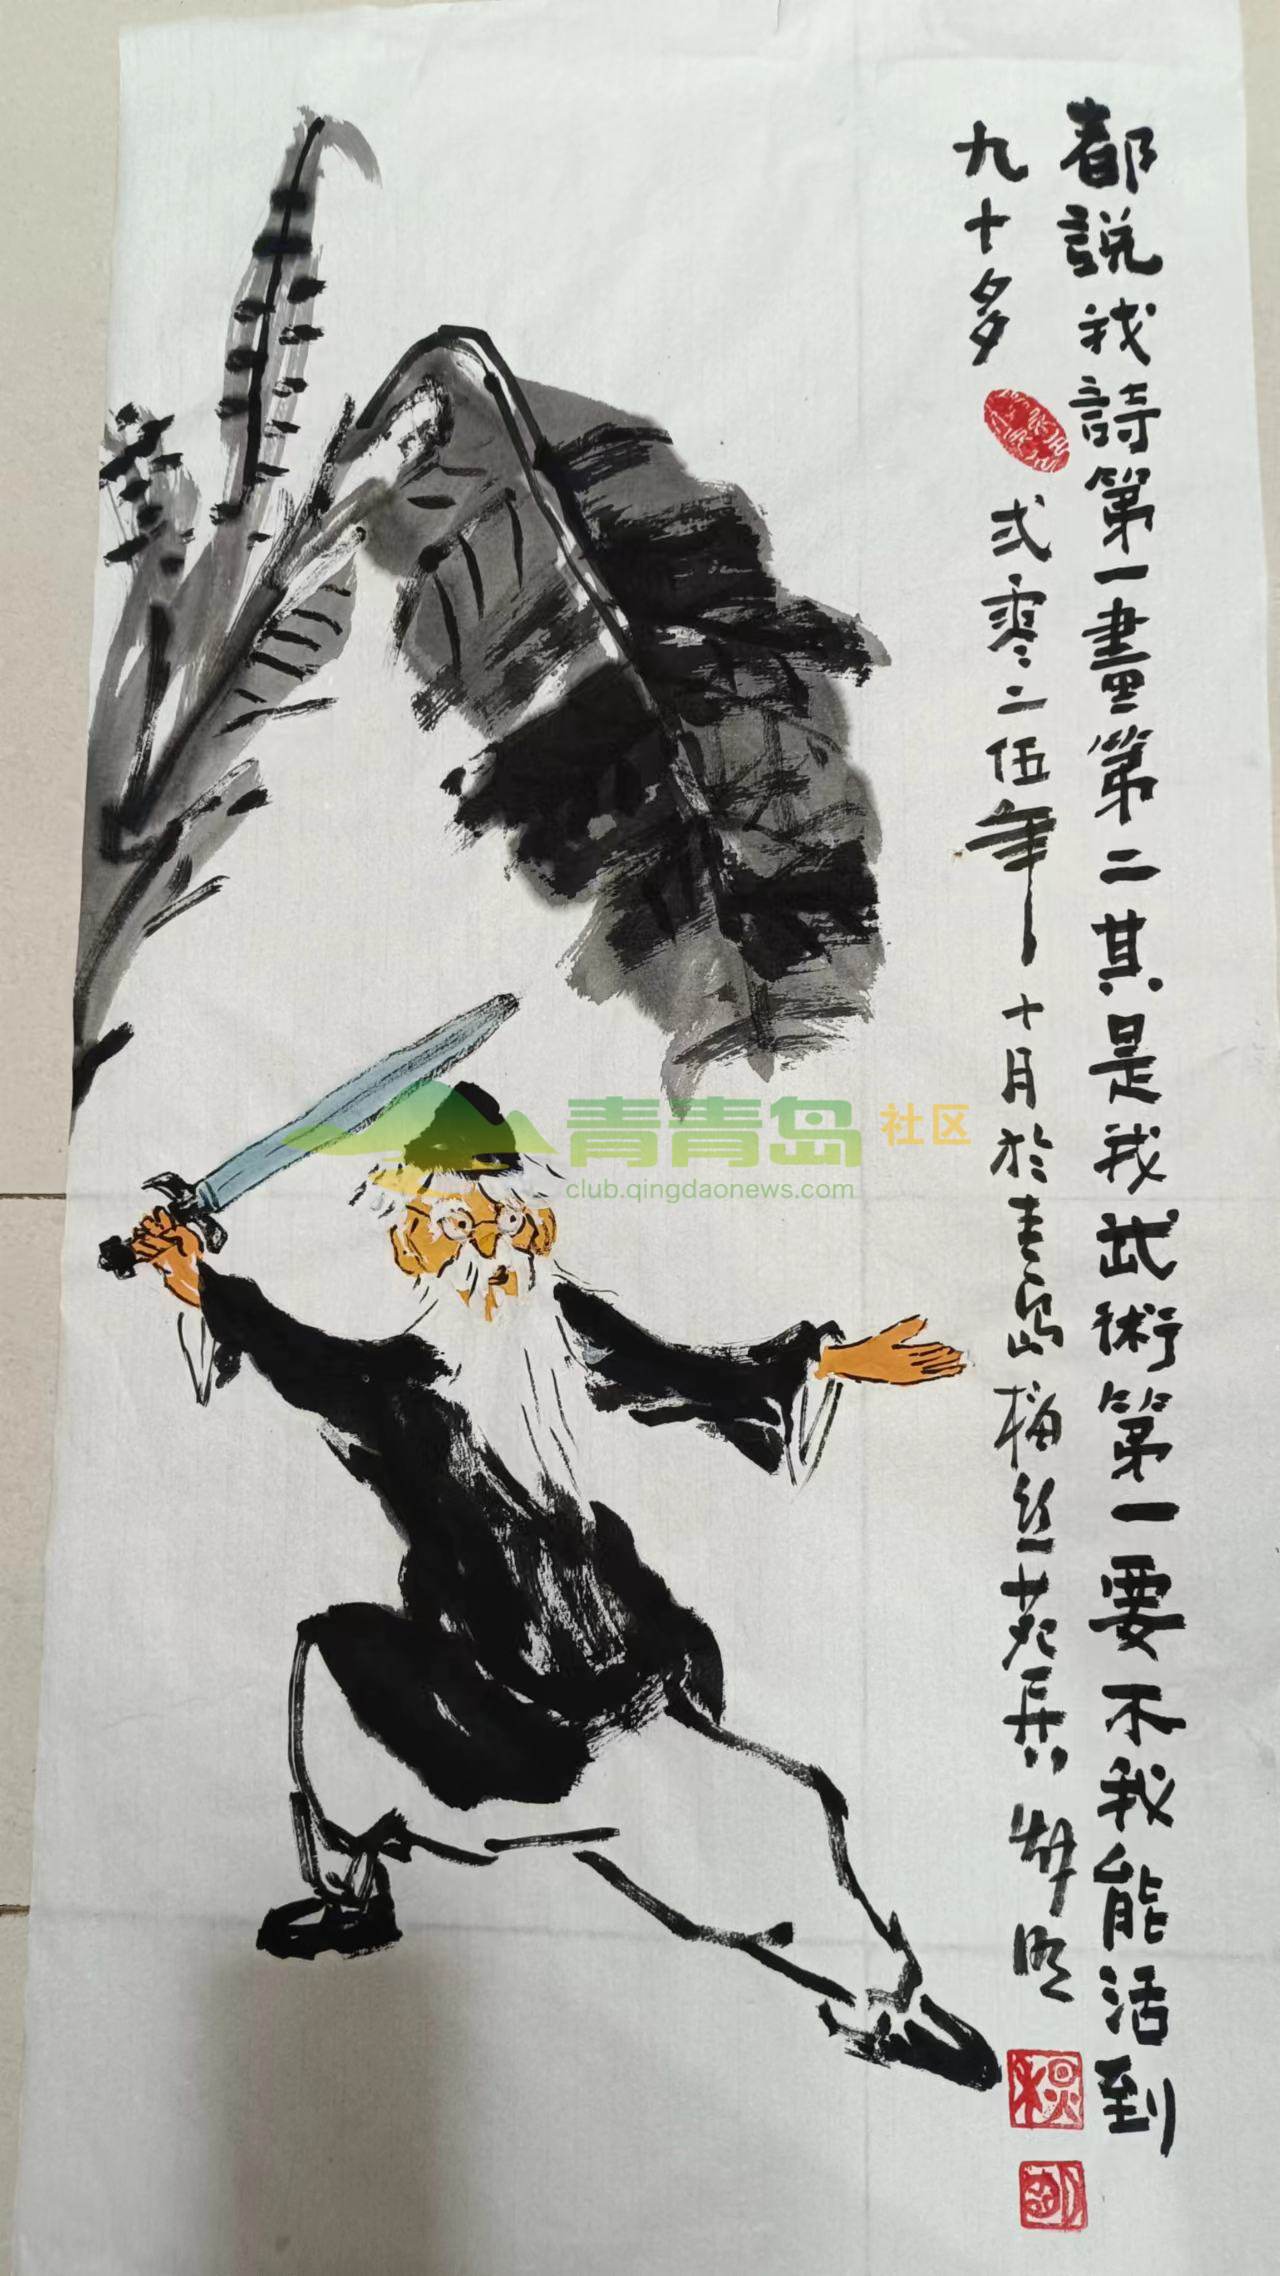 都說我詩第一畫第二其是我武術第一要不我能活到
九十多
弍零二伍年十月於青島梅丝苑
青青岛 社区
club.qingdaonews.com